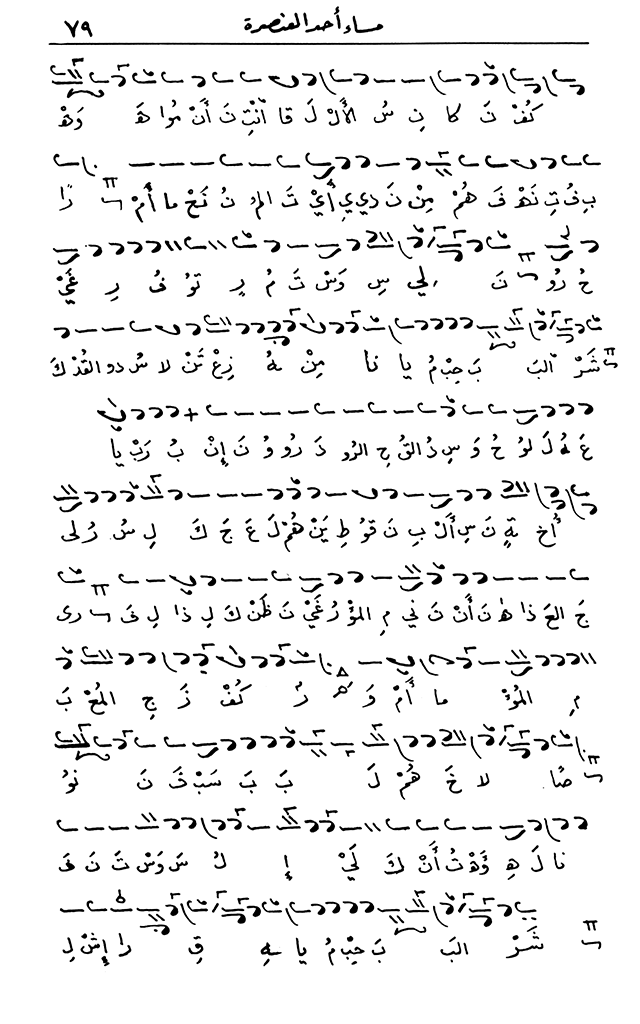 مساء أحد العنصرة ٧٩
كُفْ نَ كا نِ سُ الأَلْ لَ قا أَنْتِ نَ أَنْ مُوا هَ وَهْ
بِ فُ تِ نَهْ فَ هُمْ مِنْ نَ دي يِ أَيْ تَ المْ نُ نَعْ ما أَمْ رًا
حُ رُو نَ لي سِ وَسْ تَ مُ رِ تو فُ رِ غَيْ
شَرْ البَ بَ حِبْ مُ يا نا مِنْ هُ زِعْ تَنْ لا سُ دو القُدْ كَ
عَ هُ لَ لو حُ وَ سِ دُ القُ حِ الرو دَ رُو وُ نَ إِنْ بُ رَبْ يا
أَخِ تِهِ نَ سِ أَلْ بِ نَ قو طِ يَنْ هُمْ لَ عَ جَ كَ لِ سُ رُ لى
جَ العَ ذا هٰ نَ أَنْ نَ ني مِ المُؤْ رُ غَيْ نَ ظَنْ كَ لِ ذا لِ فَ رى
مِ المُؤْ ما أَمْ وَ هْرُ كُفْ زَ جِ المُعْ بَ
ضًا لا خَ هُمْ لَ بَ بَ سَبْ نَ نو
نا لَ هِ دَهْ تُ أَنْ كَ لَيْ إِ كُ سَ وَسْ تَ نَ فَ
شَرْ البَ بَ حِبْ مُ يا هِ قِ را إِشْ لِ